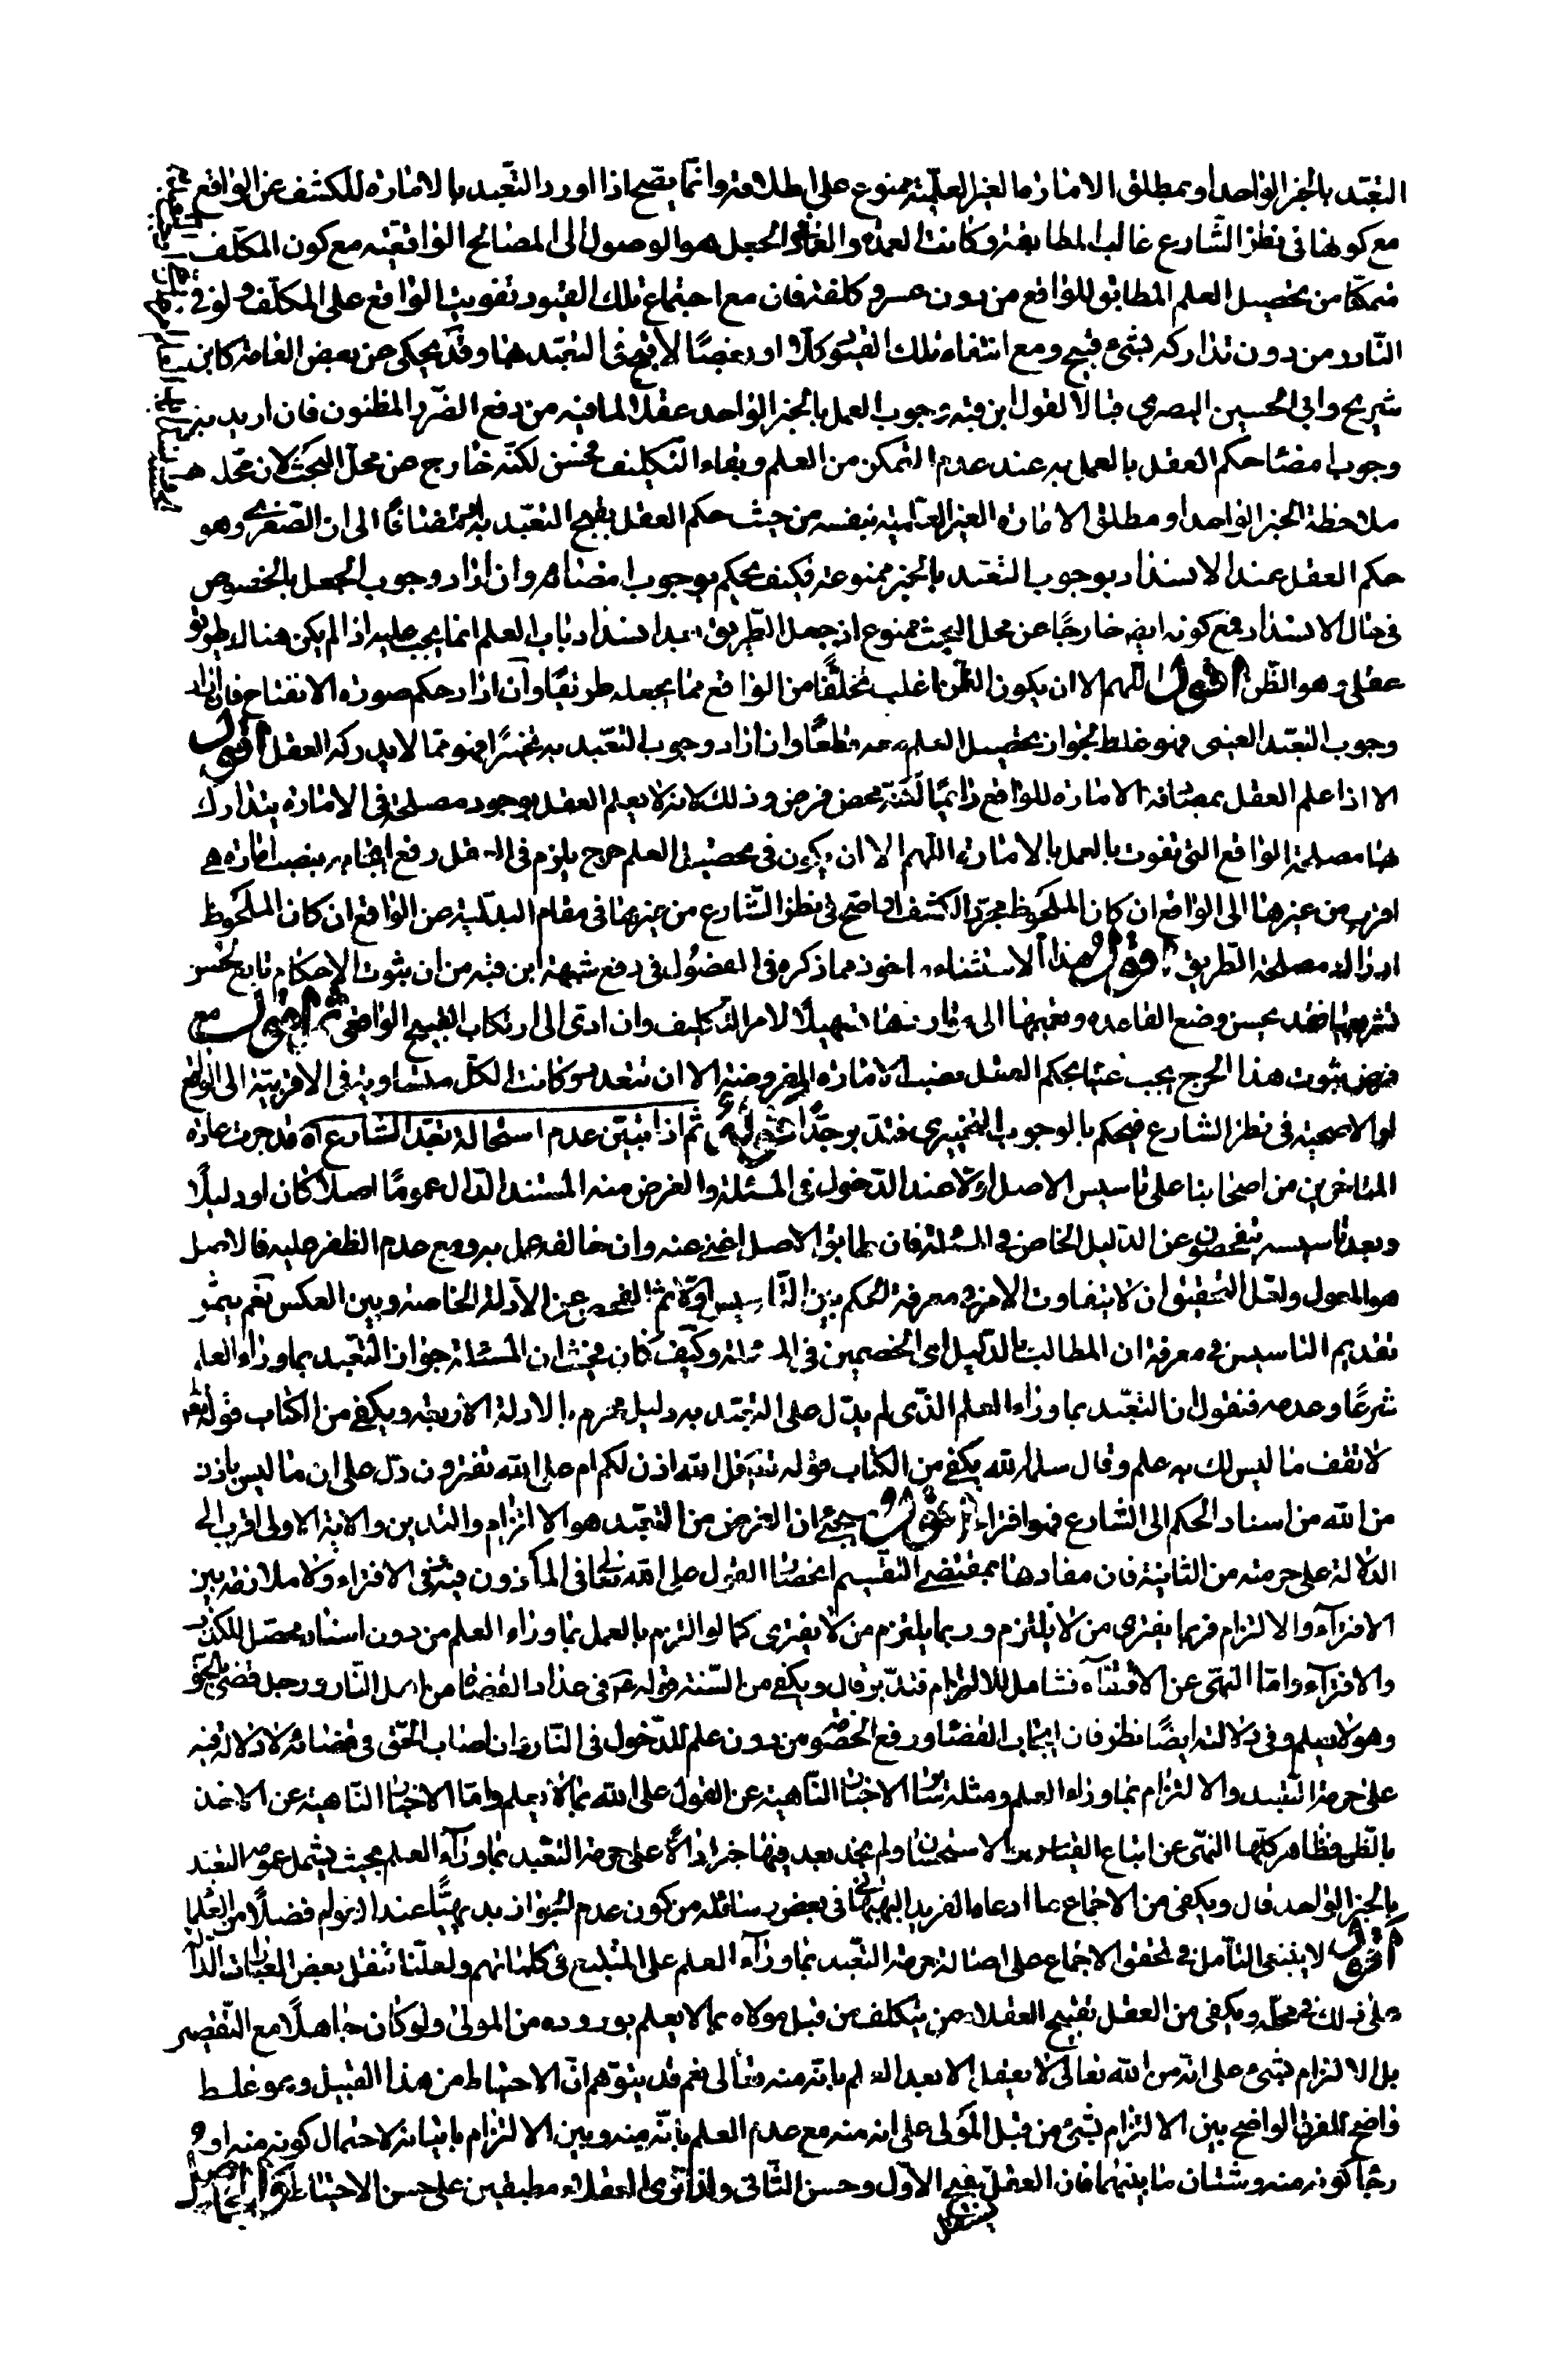 التعبّد بالخبر الواحد او بمطلق الامارة الغير العلميّة ممنوع على اطلاقه وانّما يصّح اذا اورد التعّبد بالامارة للكشف عن الواقع
مع كونها فى نظر الشّارع غالب المطابقة وكانت العمدة والغاية الجعل هو الوصول الى المصالح الواقعيّه مع كون المكلّف
متمكّنا من تحصيل العلم المطابق للواقع من دون عسر وكلفة فان مع اجتماع تلك القيود تفويت الواقع على المكلّف ولو فى
النّادر من دون تداركه بشئ قبيح ومع انتفاء تلك القيود كلّا او بعضًا لا يقبح التعبّد هنا وقد يحكى عن بعض العامة كابن
شريح وابى الحسين البصرى قبالا لقول ابن قبه وجوب العمل بالخبر الواحد عقلا لما فيه من دفع الضّرر المظنون فان اريد به
وجوب امضا حكم العقل بالعمل به عند عدم التمكن من العلم وبقاء التكليف فحسن لكنّه خارج عن محلّ البحث لان محّله
ملاحظة الخبر الواحد او مطلق الامارة الغير العلميّه بنفسه من حيث حكم العقل بقبح التعبّد به مضافًا الى ان الصّغرى وهو
حكم العقل عند الانسداد بوجوب التعبّد بالخبر ممنوعة فكيف يحكم بوجوب امضاه وان اراد وجوب الجعل بالخصوص
فى حال الانسداد فمع كونه ايضه خارجًا عن محل البحث ممنوع اذ جعل الطّريق بعد انسداد باب العلم انما يجب عليه اذا لم يكن هناك طريق
عقلىّ وهو الظّن اقول اللّهم الا ان يكون الظّن اغلب تخلّفًا من الواقع ممّا يجعله طريقًا وان اراد حكم صورة الانفتاح فان اراد
وجوب التعبّد العينى فهو غلط لجواز تحصيل العلم معه قطعًا وان اراد وجوب التعّبد به تخييرًا فهو ممّا لا يدركه العقل اقول
الا اذا علم العقل بمصادفة الامارة للواقع دائميًا لكنّه محض فرض وذلك لانه لا يعلم العقل بوجود مصلحة فى الامارة يتدارك
بها مصلحة الواقع التى تفوت بالعمل بالامارة اللّهم الا ان يكون فى تحصيل العلم حرج يلزم فى العقل رفع ايجابه بنصب امارة هى
اقرب من غيرها الى الواقع ان كان الملحوظ مجرّد الكشف او اصّح فى نظر الشّارع من غيرها فى مقام البدليّة عن الواقع ان كان الملحوظ
ادراك مصلحة الطّريق اقول هذا الاستثناء ماخوذ مما ذكره فى الفصُول فى دفع شبهة ابن قبه من ان ثبوت الاحكام تابع لحسن
تشريعها فقد يحسن وضع القاعده وتعميمها الى موارد تسهيلًا لامر التّكليف وان ادى الى ارتكاب القبيح الواقعى ثم اقول مع
فرض ثبوت هذا الحرج يجب عينًا بحكم العقل نصب الامارة المفروضة الا ان تتعدد وكانت الكلّ متساوية فى الاقربيّة الى الواقع
او الاصحيّة فى نظر الشارع فيحكم بالوجوب التخييرى فتدبر جدًّا قوله ثم اذا تبيّن عدم استحالة تعبّد الشّارع آه قد جرت عادة
المتاخرين من اصحابنا على تاسيس الاصل اوّلا عند الدّخول فى المسئلة والغرض منه المستند الدّال عمومًا اصلا كان او دليلًا
وبعد تاسيسه يتفحصون عن الدّليل الخاص فى المسئلة فان طابق الاصل اغنى عنه وان خالفه عمل به ومع عدم الظفر عليه فالاصل
هو المعول ولعّل التّحقيق ان لا يتفاوت الامر فى معرفة الحكم بين التّاسيس اوّلا ثم الفحص عن الادلة الخاصة وبين العكس نعم يثمر
تقديم التاسيس فى معرفة ان المطالب بالدّليل اى الخصمين فى المسئلة وكيف كان فحيث ان المسئلة جواز التعبّد بما وراء العلم
شرعًا وعدمه فنقول ان التعبّد بما وراء العلم الذّى لم يدّل على التعبّد به دليل محرم بالادلة الاربعة ويكفى من الكتاب قوله تعالى
لا تقف ما ليس لك به علم وقال سلمه الله يكفى من الكتاب قوله تعالى قل الله اذن لكم ام على الله تفترون دلّ على ان ما ليس باذن
من الله من اسناد الحكم الى الشارع فهو افتراء اقول سيجئ ان الغرض من التعبّد هو الالتزام والتدين والاية الاولى اقرب الى
الدّلالة على حرمته من الثانية فان مفادها بمقتضى التقسيم انحصار القول على الله تعالى فى الماذون فيه وفى الافتراء ولا ملازمة بين
الافتراء والالتزام فربما يفترى من لا يلتزم وربما يلتزم من لا يفترى كما لو التزم بالعمل بما وراء العلم من دون اسناد محصّل للكذب
والافتراء وامّا النهى عن الاقتفاء فشامل للالتزام فتدّبر قال ويكفى من السّنة قوله ع فى عداد القضاة من اهل النّار ورجل قضى بالحق
وهو لا يعلم وفى دلالته ايضًا نظر فان ايجاب القضا ورفع الخصومة من دون علم للدّخول فى النّار وان اصاب الحّق فى قضائه لا دلالة فيه
على حرمة التعبد والالتزام بما وراء العلم ومثله ساير الاخبار النّاهية عن القول على الله بما لا يعلم وامّا الاخبار النّاهية عن الاخذ
بالظّن فظاهر كلّها النهى عن اتباع القياس والاستحسان ولم نجد بعد فيها خبرًا دالًا على حرمة التعبّد بما وراء العلم بحيث يشمل عمومه التعبّد
بالخبر الواحد قال ويكفى من الاجماع ما ادعاه الفريد البهبهانى فى بعض رسائله من كون عدم الجواز بديهيًّا عند العوام فضلًا من العُلما
اقول لا ينبغى التأمل فى تحقق الاجماع على اصالة حرمة التعّبد بما وراء العلم على المتتبع فى كلماتهم ولعلّنا ننقل بعض العبارات الدّالة
على ذلك فى محلّه ويكفى من العقل تقبيح العقلاء من يتكلف من قبل مولاه بما لا يعلم بوروده من المولى ولو كان جاهلًا مع التّقصير
بل الالتزام بشئ على انّه من الله تعالى لا يعقل الا بعد العلم بانّه منه تعالى نعم قد يتوّهم انّ الاحتياط من هذا القبيل وهو غلط
واضح للفرق الواضح بين الالتزام بشئ من قبل المَولى على انه منه مع عدم العلم بانّه منه وبين الالتزام باتيانه لاحتمال كونه منه او
رجاء كونه منه وشتان ما بينهما فان العقل يقبح الاوّل وحسن الثّانى ولذا ترى العقلاء مطبقين على حسن الاحتياط
يستقل